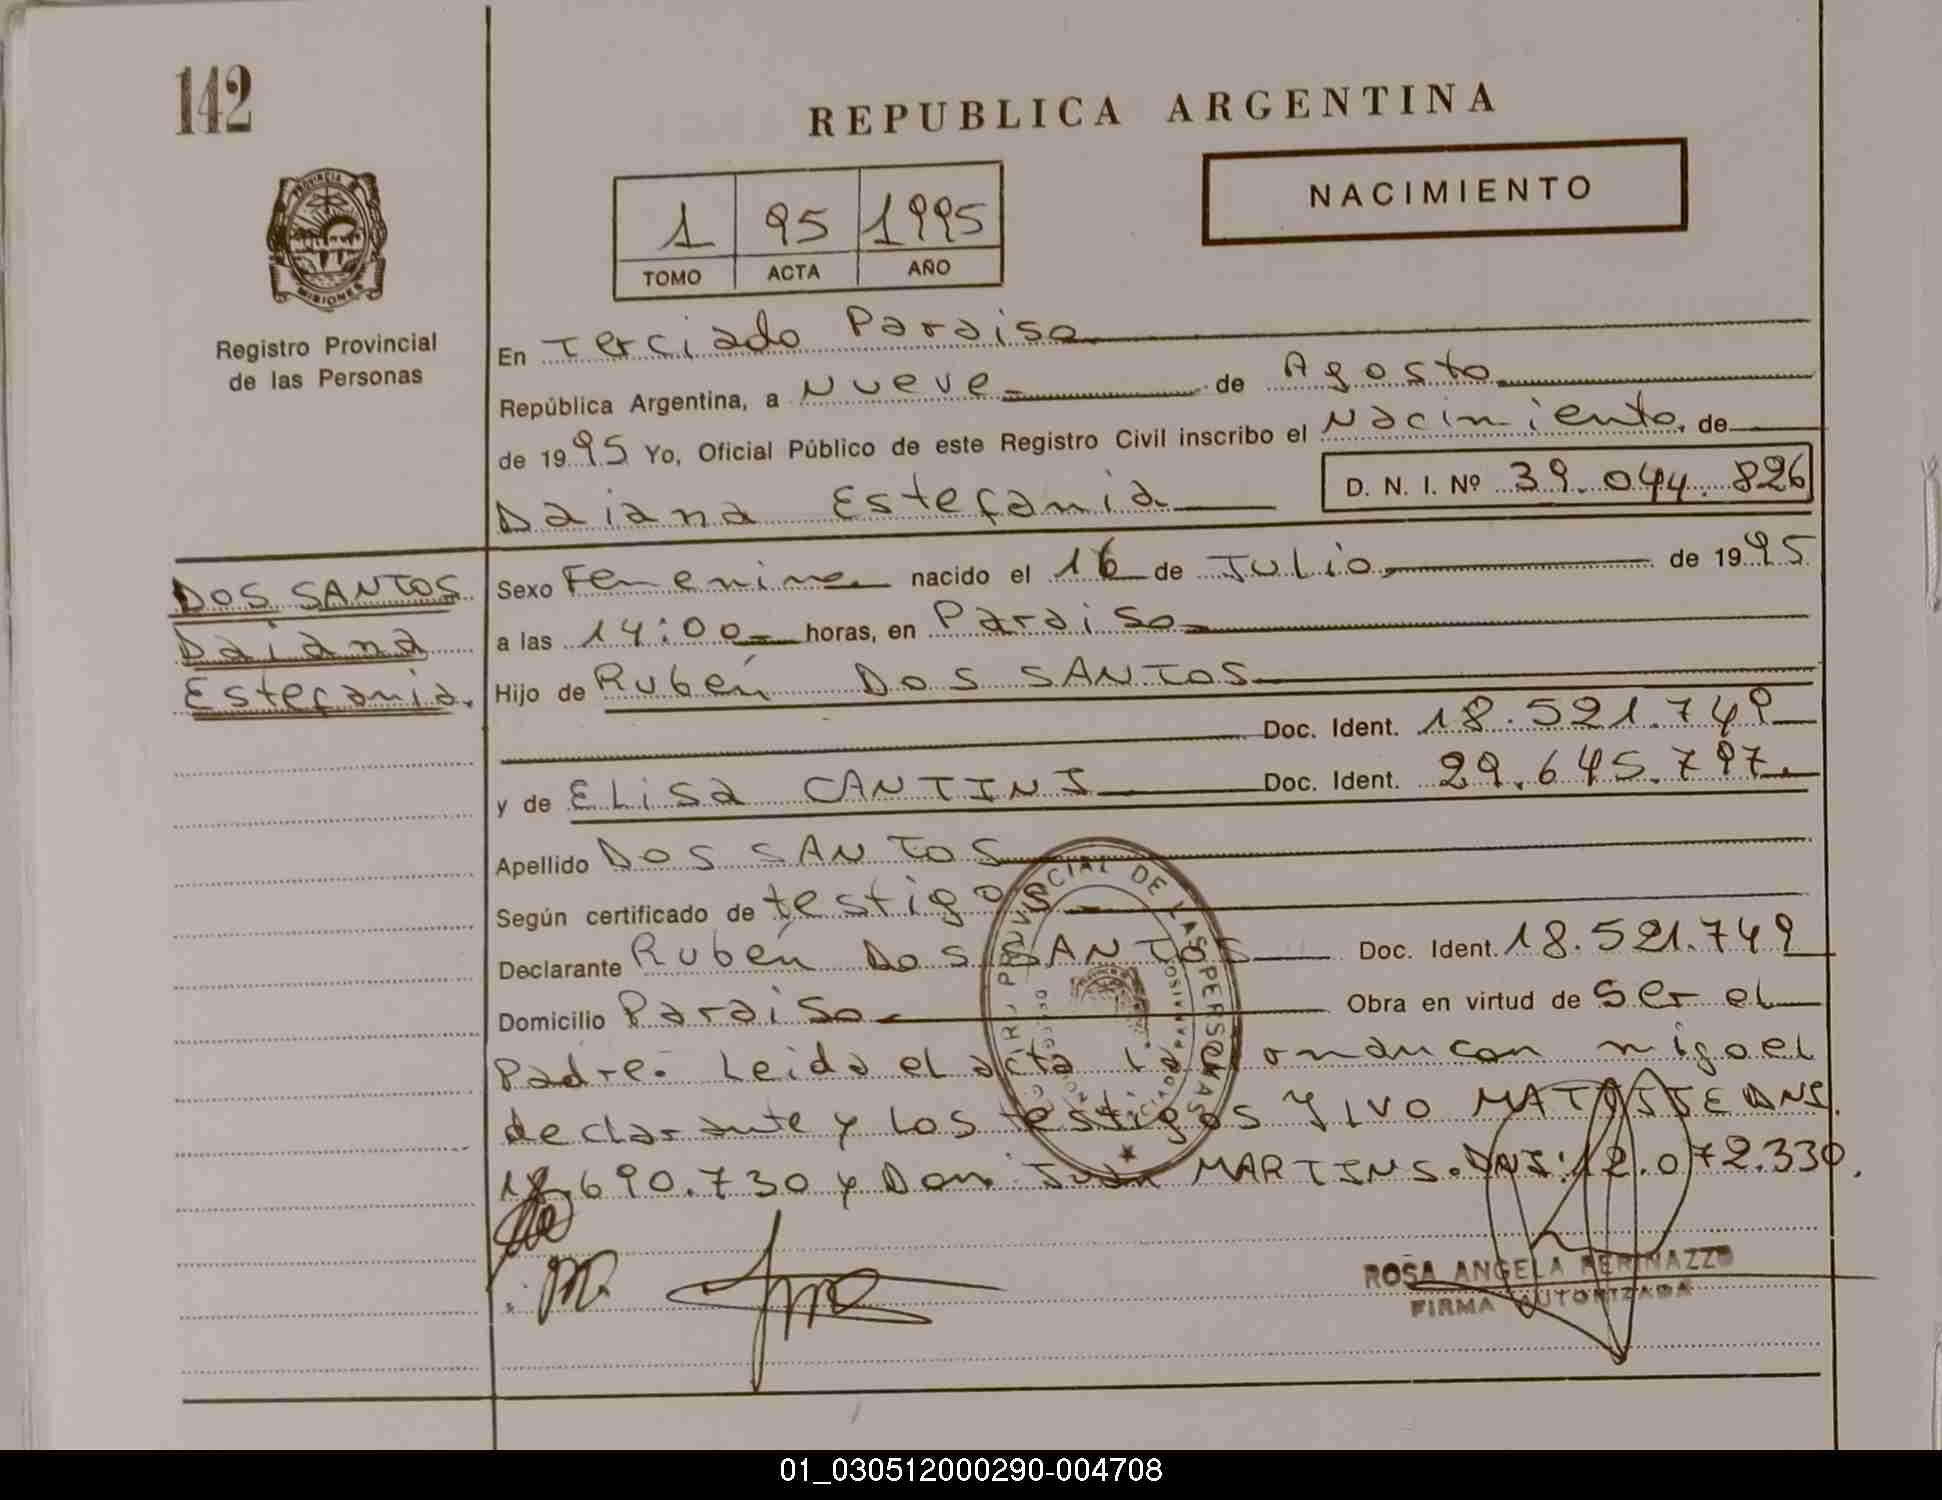 142
REPUBLICA ARGENTINA
NACIMIENTO
1 95 1995
TOMO ACTA AÑO
PROVINCIA
MISIONES
Registro Provincial
de las Personas
En Terciado Paraiso
República Argentina, a Nueve de Agosto
de 1995 Yo, Oficial Público de este Registro Civil inscribo el Nacimiento, de
D. N. I. Nº 39.044.826
Daiana Estefania
DOS SANTOS
Daiana
Estefania.
Sexo Femenino nacido el 16 de Julio, de 1995
a las 14:00 horas, en Paraiso
Hijo de Rubén DOS SANTOS
Doc. Ident. 18.521.749
y de ELisa CANTINI Doc. Ident. 29.645.797.
Apellido DOS SANTOS
Según certificado de testigos
Declarante Rubén Dos SANTOS Doc. Ident. 18.521.749
Domicilio Paraiso Obra en virtud de ser el
Padre. Leida el acta la con migo el
declarante y Los testigos
.690.730 y Don. Juan MARTINS. DNI: 12.072.330.
PROVINCIAL DE LAS PERSONAS
ROSA ANGELA PERINAZZO
FIRMA AUTORIZADA
01_030512000290-004708